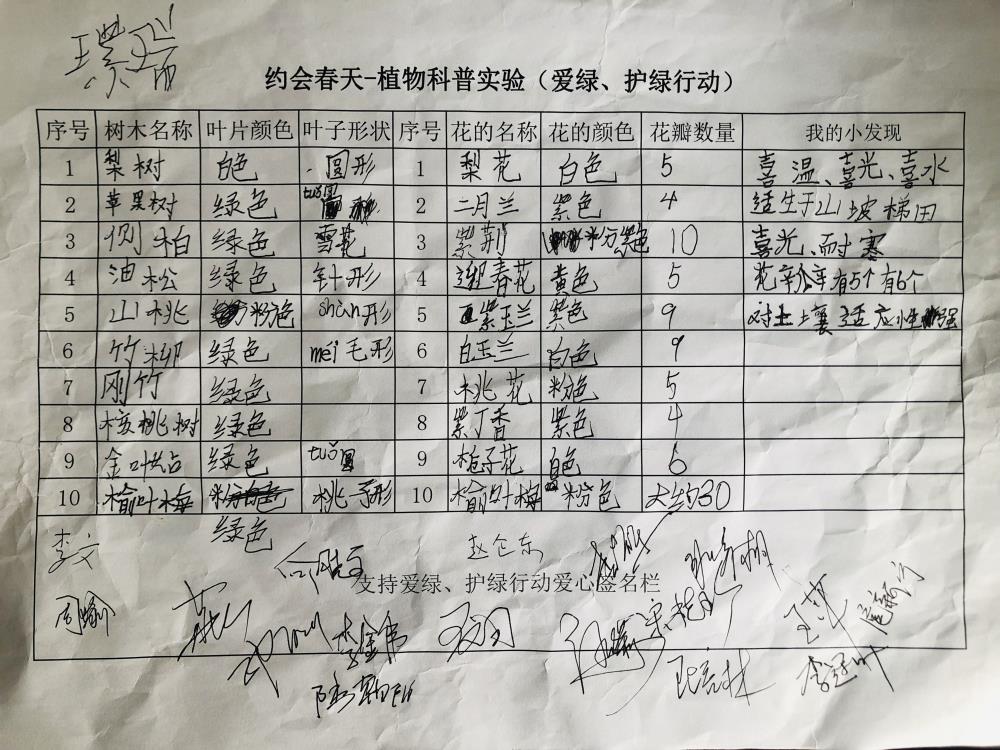 约会春天-植物科普实验（爱绿、护绿行动）
序号 树木名称 叶片颜色 叶子形状 序号 花的名称 花的颜色 花瓣数量 我的小发现
1 梨树 白色 圆形 1 梨花 白色 5 喜温、喜光、喜水
2 苹果树 绿色 tuǒ圆形 2 二月兰 紫色 4 适生于山坡梯田
3 侧柏 绿色 雪花 3 紫荆 粉紫色 10 喜光、耐寒
4 油松 绿色 针形 4 迎春花 黄色 5 有5个有6个
5 山桃 粉色 形 5 紫玉兰 紫色 9 对土壤适应性强
6 竹柳 绿色 méi毛形 6 白玉兰 白色 9
7 刚竹 绿色 7 桃花 粉色 5
8 核桃树 绿色 8 紫丁香 紫色 4
9 绿色 tuǒ圆 9 栀子花 白色 6
10 榆叶梅 桃子形 10 榆叶梅 粉色 大约30
绿色
李文 赵仑东
支持爱绿、护绿行动爱心签名栏
周瑜
李金伟